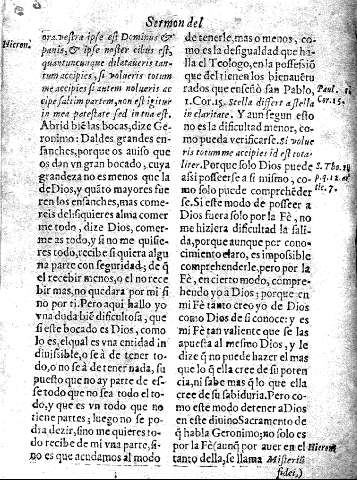 Sermon del
ora nostra ipse est Dominus &
panis, & ipse noster cibus est,
quantuncunque dilataueris tan-
tum accipies, si volueris totum
me accipies si antem nolueris ac
cipe saltim partem, non est igitur
in mea potestate sed in tua est.
Abrid biē las bocas, dize Ge-
ronimo: Daldes grandes en-
sanches, porque os auiso que
os dan vn gran bocado, cuya
grandeza no es menos que la
de Dios, y quāto mayores fue
ren los ensanches, mas come-
reis del: si quieres alma comer
me todo, dize Dios, comer-
me as todo, y si no me quisie-
res todo, recibe si quiera algu
na parte con seguridad; de q̄
el recebir menos, o el no rece
bir mas, no quedara por mi si
no por ti. Pero aqui hallo yo
vna duda biē dificultosa, que
si este bocado es Dios, como
lo es, el qual es vna entidad in
diuisible, o se à de tener to-
do, o no se à de tener nada, su
puesto que no ay parte de es-
se todo que no sea todo el to-
do, y que es vn todo que no
tiene partes; luego no se po-
dra dezir, sino me quieres to-
do recibe de mi vna parte, si-
no es que acudamos al modo
Hieron.
de tenerle, mas o menos, co-
mo es la desigualdad que ha-
lla el Teologo, en la possessiō
que del tienen los bienauētu
rados que enseñò san Pablo,
1. Cor. 15. Stella differt a stella
in claritate. Y aun segun esto
no es la dificultad menor, co-
mo pueda verificarse. Si volue
ris totum me accipies id est tota-
liter. Porque solo Dios puede
assi posseerse a si mismo, co-
mo solo puede comprehēder
se. Si este modo de posseer a
Dios fuera solo por la Fè, no
me hiziera dificultad la sali-
da, porque aunque por cono-
cimiento claro, es impossible
comprehenderle, pero por la
Fè, en cierto modo, compre-
hendo yo a Dios; porque en
mi Fè tanto creo yo de Dios
como Dios de si conoce: y es
mi Fè tan valiente que se las
apuesta al mesmo Dios, y le
dize q̄ no puede hazer el mas
que lo q̄ ella cree de su poten
cia, ni sabe mas q̄ lo que ella
cree de su sabiduria. Pero co-
mo este modo detener a Dios
en este diuino Sacramento de
q̄ habla Geronimo; no solo es
por la Fè (aunq̄ por auer en el
tanto della, se llama Misteriū
fidei,)
Paul.
Cor. 15.
S. Tho.
p. q. 12. ar
tic. 7.
Hieron